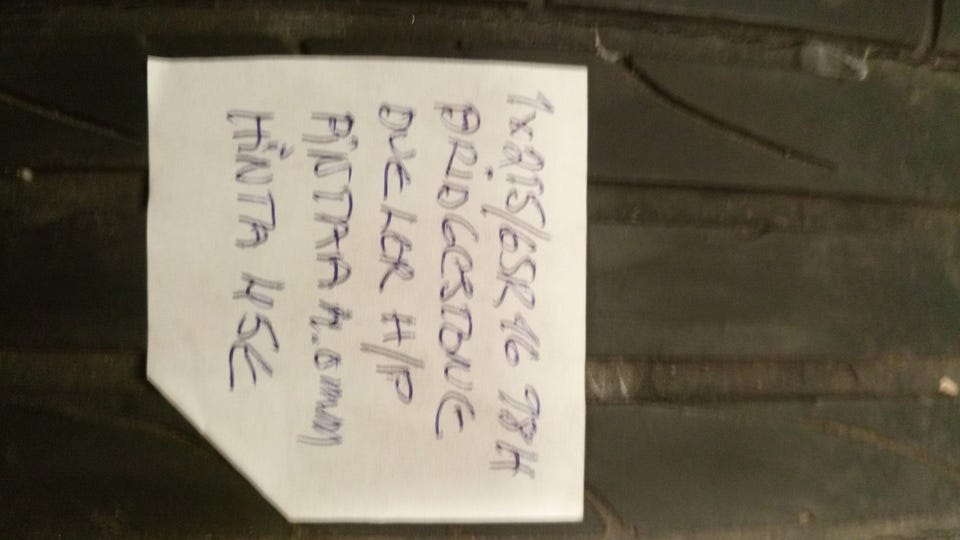 1x215/65R16 98H
BRIDGESTONE
DUELER H/P
PINTAA 4.0mm
HINTA 45€